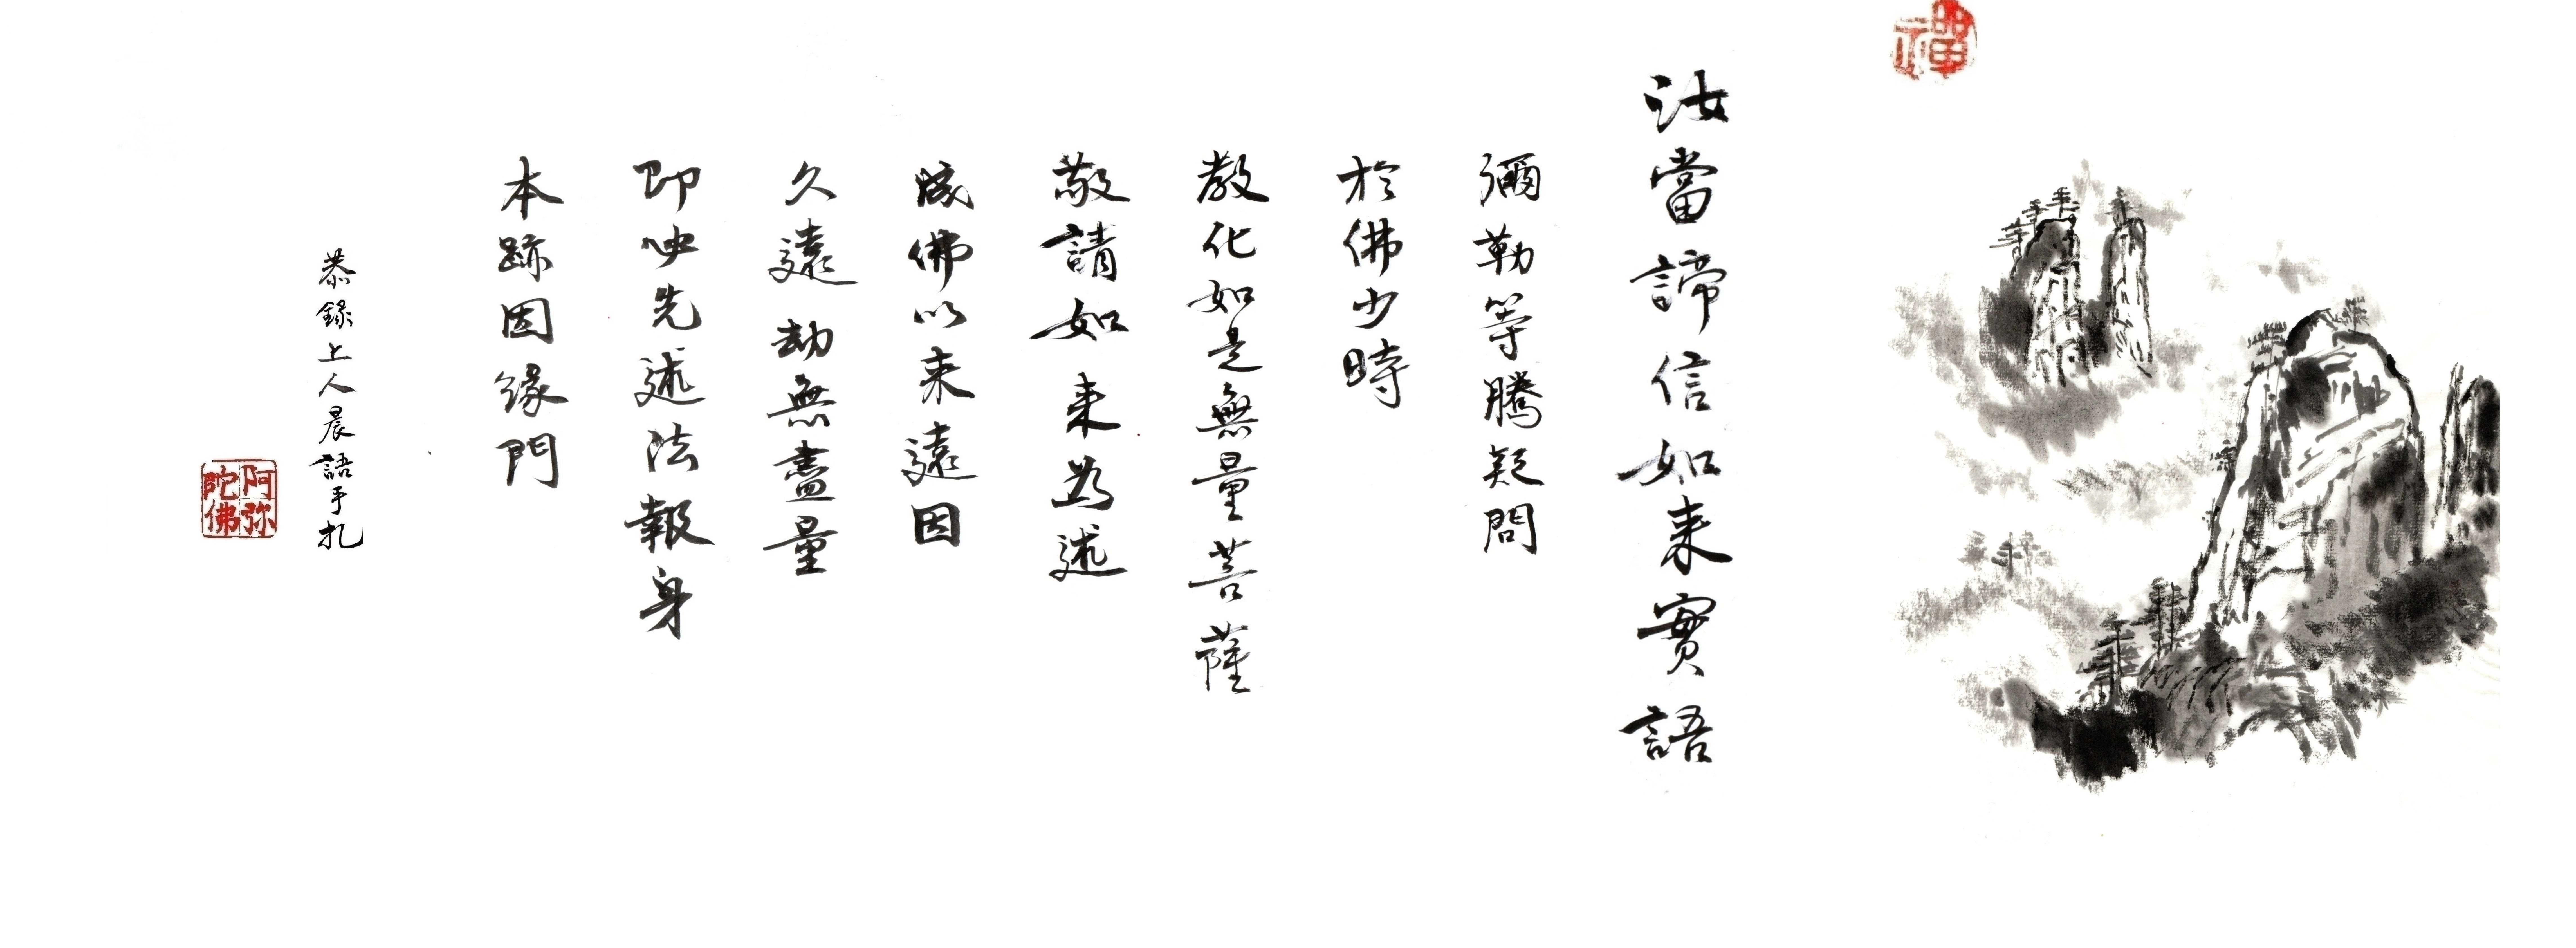 禪
汝當諦信如来實語
彌勒等騰疑問
於佛少時
教化如是無量菩薩
敬請如来為述
成佛以来遠因
久遠劫無盡量
即映先述法報身
本跡因緣門
恭錄上人晨語手扎
阿弥
陀佛